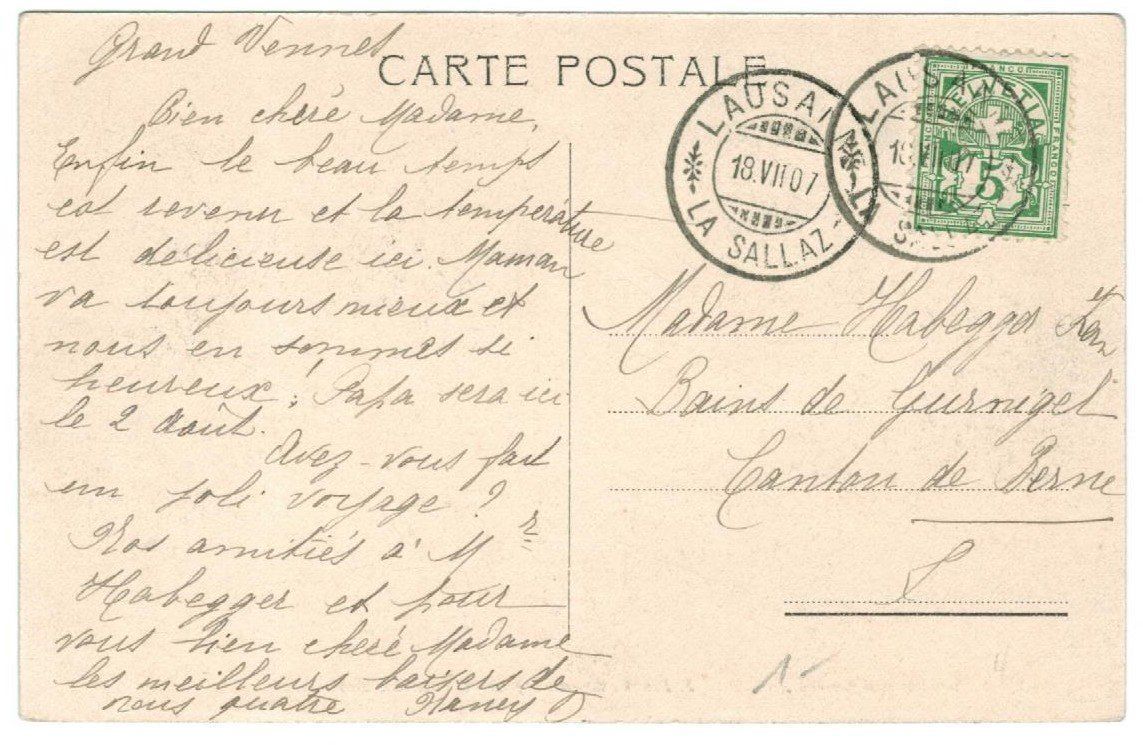 Grand Vennes
CARTE POSTALE
Bien cheré Madame,
Enfin le beau temps
est revenu et la temperature
est délicieuse ici. Maman
va toujours mieux et
nous en sommes si
heureux; Papa sera ici
le 2 août.
Avez-vous fait
un joli voyage?
Nos amitiés à Mr
Habegger et pour
vous bien cheré Madame
les meilleurs baisers de
nous quatre Nancy
LAUSANNE
18.VII 07
LA SALLAZ
LAUSANNE
18.VII 07
LA SALLAZ
FRANCO
HELVETIA
5
FRANCO
Madame Habegger
Bains de Gurnigel
Canton de Berne
1.-